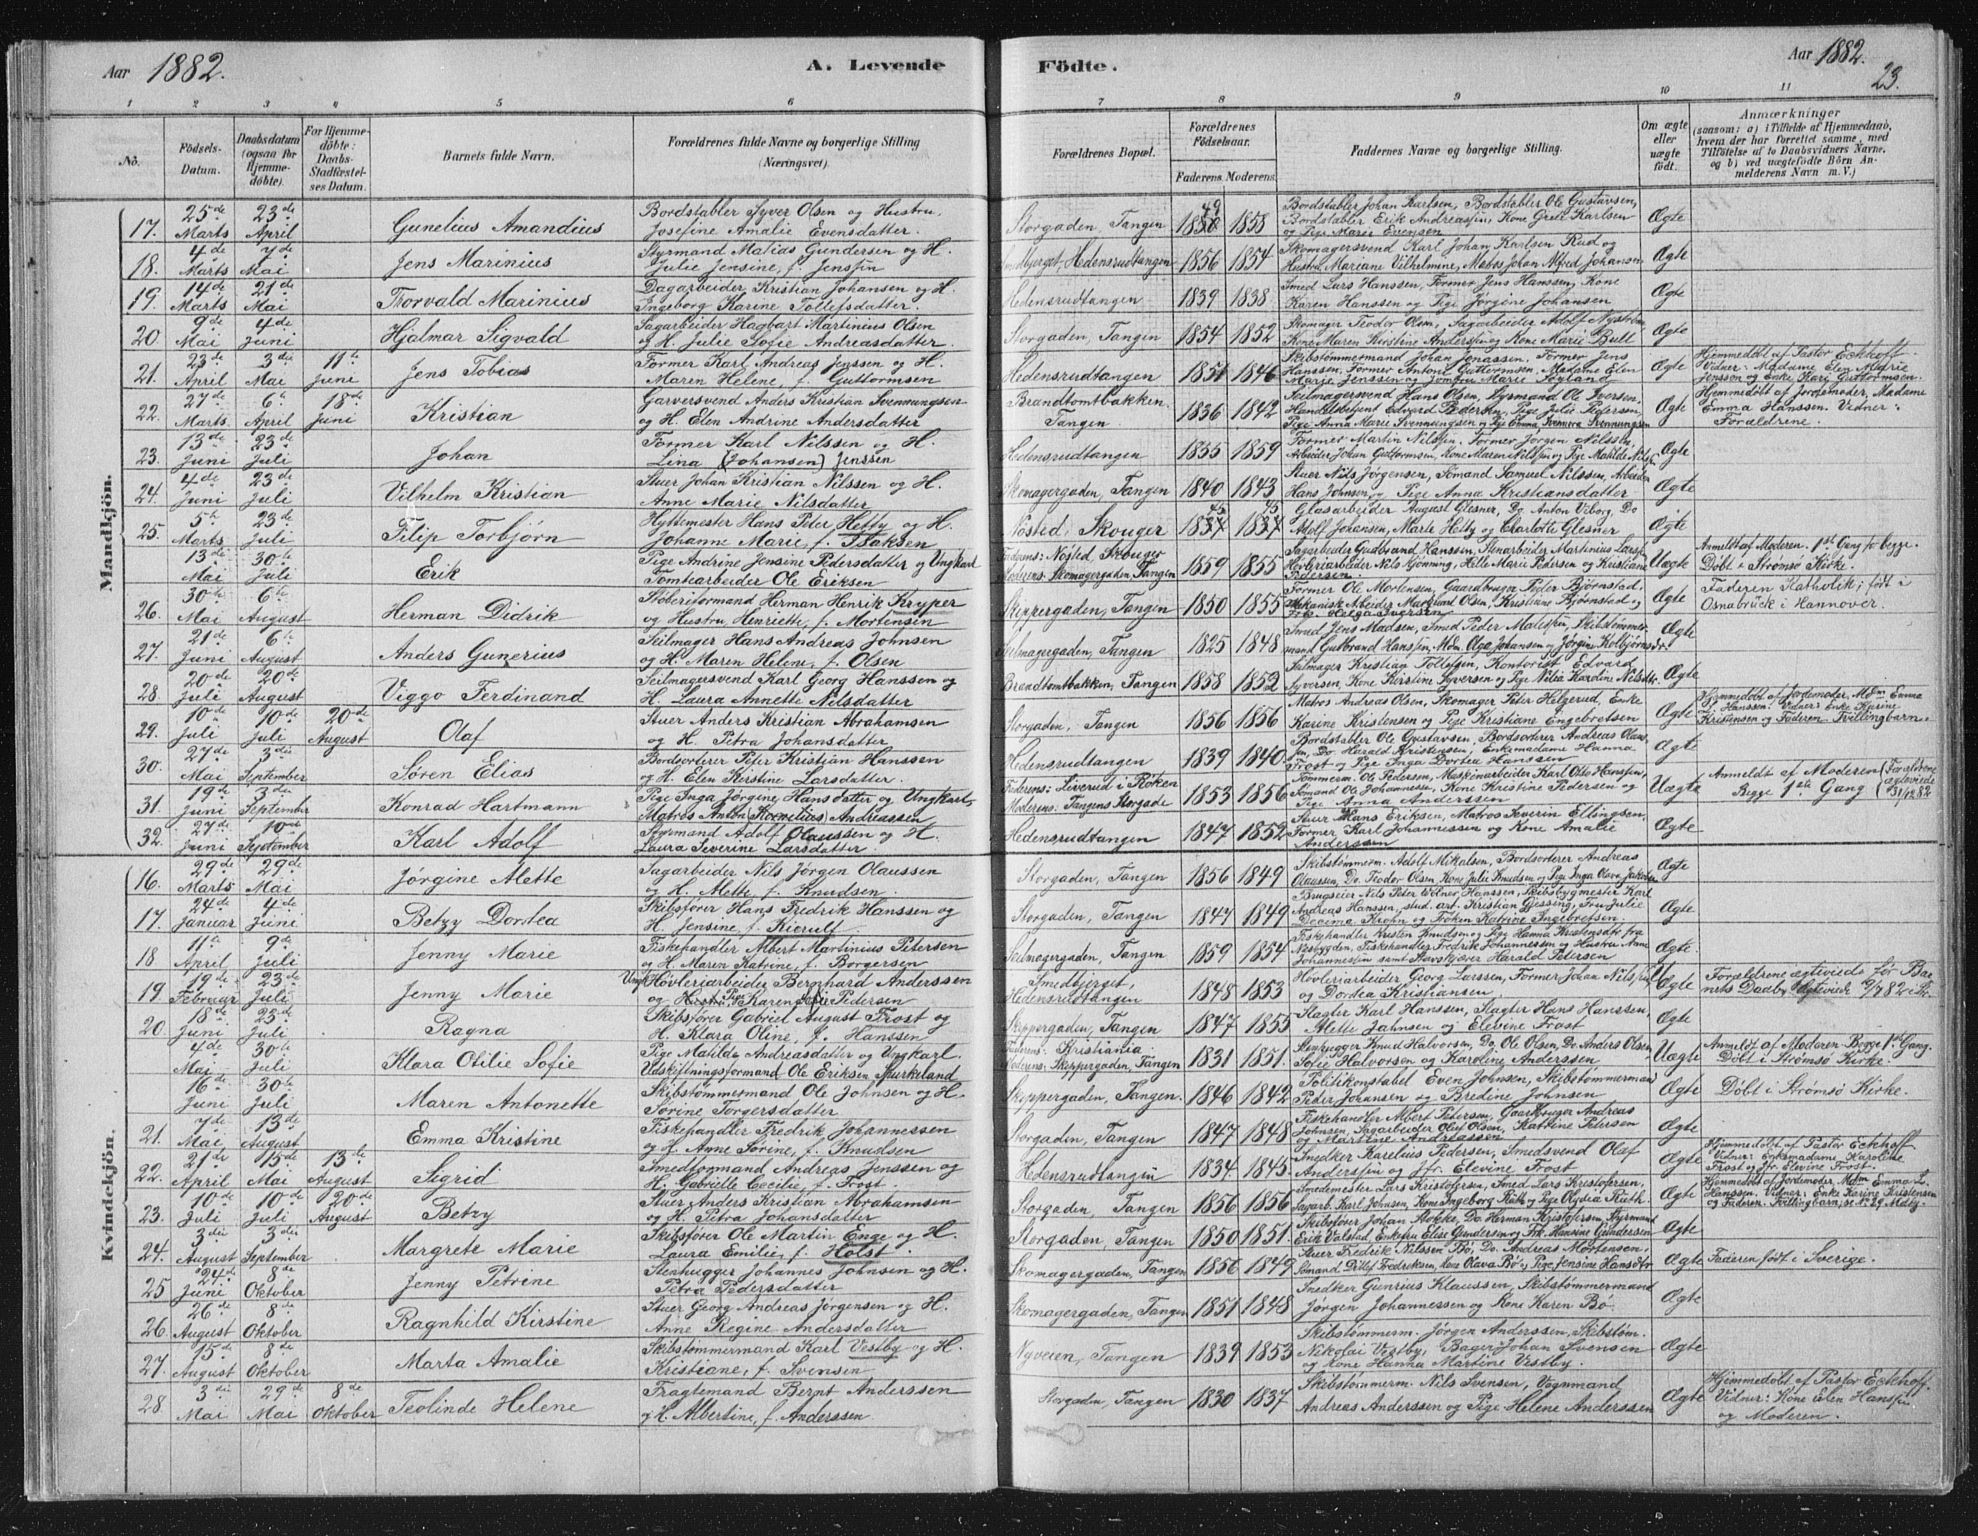 Aar 1882. A. Levende Födte. Aar 1882. 23.
1 2 3 4 5 6 7 8 9 10 11
No. Födsels-Datum. Daabsdatum (ogsaa for Hjemmedöbte). For Hjemmedöbte: Daabs-Stadfæstelses Datum. Barnets fulde Navn. Forældrenes fulde Navne og borgerlige Stilling (Næringsvei). Forældrenes Bopæl. Forældrenes Födselsaar. Faderens. Moderens. Faddernes Navne og borgerlige Stilling. Om ægte eller uægte födt. Anmærkninger (saasom: a) i Tilfælde af Hjemmedaab, hvem der har forrettet samme, med Tilföielse af to Daabsvidners Navne, og b) ved uægtefödte Börn Anmelderens Navn m. V.)
Mandkjön.
17. 25de Marts 23de April Gunelius Amandius Bordstabler Syver Olsen og Hustru, Josefine Amalie Evensdatter Storgaden, Tangen 1849 1858 Bordstabler Johan Karlsen, Bordstabler Ole Gustavsen, Bordstabler Erik Andreassen, Kone Grete Karlsen og Pige Marie Evensen Ægte
18. 4de Marts 7de Mai Jens Marinius Styrmand Matias Gundersen og H. Julie Jensine, f. Jenssen Hedensrudtangen 1856 1854 Skomagersvend Karl Johan Karlsen Rud og Hustru Mariane Vilhelmine, Matros Johan Alfred Johansen Ægte
19 14de Marts 21de Mai Thorvald Marinius Dagarbeider Kristian Johansen og H. Ingeborg Karine Tollefsdatter Hedensrudtangen 1839 1838 Smed Lars Hanssen, Former Jens Hanssen, Kone Karen Hanssen og Pige Jørgine Johansen Ægte
20. 9de Mai 4de Juni Hjalmar Sigvald Sagarbeider Hagbart Martinius Olsen og H. Julie Sofie Andreasdatter Storgaden, Tangen 1854 1852 Skomager Teodor Olsen, Sagarbeider Adolf Nystrøm, Kone Maren Kirstine Anderssen og Kone Marie Bull Ægte
21. 23de April 3die Mai 11te Juni Jens Tobias Former Karl Andreas Jenssen og H. Maren Helene, f. Guttormsen Hedensrudtangen 1851 1846 Skibstømmermand Johan Jenassen, Former Jens Hanssen, Former Antons Guttormsen, Madame Elen Marie Jenssen og Jomfru Marie Føyland Ægte Hjemmedöbt af Pastor Eckhoff. Vidner: Madame Elen Marie Jenssen og Enke Kari Guttormsen
22. 27de Marts 6te April 18de Juni Kristian Garversvend Anders Kristian Svennungsen og H. Elen Andrine Andersdatter Brandtomtbakken. Tangen 1836 1842 Seilmagersvend Hans Olsen, Styrmand Ole Iversen, Handelsbetjent Edvard Pedersen, Pige Julie Pedersen, Pige Anna Marie Svennungsen og Pige Emma Svennungsen Ægte Hjemmedöbt af Jordemoder, Madame Emma Hanssen. Vidner: Forældrene.
23. 13de Juni 23de Juli Johan Former Karl Nilssen og H. Lina (Johansen) Jenssen Hedensrudtangen 1855 1859 Former Martin Nilssen, Former Jørgen Nilssen, Arbeider Johan Guttormsen, Kone Maren Nilssen og Pige Matilde Nilsen Ægte
24. 4de Juni 23de Juli Vilhelm Kristian Stuer Johan Kristian Nilssen og H. Anne Marie Nilsdatter Skomagergaden, Tangen 1840 1843 Stuer Nils Jørgensen, Sømand Samuel Nilssen, Arbeider Hans Johnsen, og Pige Anna Kristiansdatter Ægte
25. 5te Marts 23de Juli Filip Torbjørn Hyttemester Hans Peter Hetty og H. Johanne Marie, f. Isaksen Nøsted, Skouger Glasarbeider August Glesner, Do Anton Viborg, Do Adolf Johansen, Marte Hetty og Charlotte Glesner Ægte
13de Mai 30te Juli Erik Pige Andrine Jensine Pedersdatter og Ungkarl Tomtearbeider Ole Eriksen Faderens: Nøsted, Skouger Moderens: Skomagergaden, Tangen 1859 1855 Sagarbeider Gudbrand Hanssen, Stenarbeider Martinius Larssen, Høvleriarbeider Nils Hjønning, Helle Marie Pedersen og Kristiane Pedersen Uægte Anmeldt af Moderen. 1st Gang for begge. Döbt i Strømsø Kirke.
26. 30te Mai 6te August Herman Didrik Støberiformand Herman Henrik Kryper og Hustru Henriette, f. Mortensen Skippergaden, Tangen 1850 1855 Former Ole Mortensen, Gaardbruger Peder Bjørnstad, Mekanisk Arbeider Marelius Olsen, Kristiane Bjørnstad og Pige Helga Iversen Ægte Faderen Katholik; født i Osnabrück i Hannover.
27. 21de Juni 6te August Anders Gunerius Seilmager Hans Andreas Johnsen og H. Maren Helene, f. Olsen Seilmagergaden, Tangen 1825 1848 Smed Jens Madsen, Smed Peder Madsen, Skibstømmermand Gutbrand Hanssen, Mdm Olga Johansen og Jørgine Kolbjørnsdr Ægte
28. 20de Juli 20de August Viggo Ferdinand Seilmagersvend Karl Georg Hanssen og H. Laura Annette Nilsdatter Brandtomtbakken, Tangen 1858 1853 Seilmager Kristian Tollefsen, Kontorist Edvard Syversen, Kone Kirstine Syversen og Pige Nilia Karoline Nilsdtr. Ægte
29. 10de Juli 10de Juli 20de August Olaf Stuer Anders Kristian Abrahamsen og H. Petra Johansdatter Storgaden, Tangen 1856 1856 Matros Andreas Olsen, Skomager Peter Helgerud, Enke Karine Kristensen og Pige Kristiane Engebretsen Ægte Hjemmedöbt af Jordemoder, Mdm Emma Hanssen. Vidner: Enke Karine Kristensen og Faderen. Tvillingbarn.
30. 27de Mai 3die September Søren Elias Bordsorterer Peter Kristian Hanssen og H. Elen Kirstine Larsdatter. Hedensrudtangen 1839 1840 Bordstabler Ole Gustavsen, Bordsorterer Andreas Olaussen, Do. Herald Kristensen, Enkemadame Hanna Frost og Pige Inga Dortea Hanssen Ægte
31. 19de Juni 3die September Konrad Hartmann Pige Inga Jørgine Hansdatter og Ungkarl, Matros Anton Kornelius Andreassen Faderens: Liverud i Røken Moderens: Tangens Storgade 1853 1856 Tømmerm. Ole Pedersen, Maskinarbeider Karl Otto Hanssen, Sømand Ole Johannesen, Kone Kristine Pedersen og Pige Anna Anderssen Uægte Anmeldt af Moderen Begge 1ste Gang (Forældrene ægteviede 31/12 82
32. 27de Juni 10de September Karl Adolf Styrmand Adolf Olaussen og H. Laura Severine Larsdatter. Hedensrudtangen 1847 1852 Stuer Hans Eriksen, Matros Severin Ellingsen, Former Karl Johannessen og Kone Amalie Anderssen Ægte
Kvindekjön.
16. 29de Marts 29de Mai Jørgine Alette Sagarbeider Nils Jørgen Olaussen og H. Alette, f. Knudsen. Storgaden, Tangen 1856 1849 Skibstømmerm. Adolf Mikalsen, Bordsorterer Andreas Olaussen, Do. Teodor Olsen, Kone Julie Knudsen og Pige Inga Olava Jakobsen Ægte
17. 24de Januar 4de Juni Betzy Dortea Skibsfører Hans Fredrik Hanssen og H. Jensine, f. Kierulf. Storgaden, Tangen 1847 1849 Brugseier Nils Peter Wilner Hanssen, Skibsbygmester Karl Andreas Hanssen, stud. art. Kristian Gjessing, Fru Julie Decema Krohn og Frøken Katrine Ingebretsen. Ægte
18 11te April 9de Juli Jenny Marie Fiskehandler Albert Martinius Petersen og H. Maren Katrine, f. Borgersen Seilmagergaden, Tangen 1859 1854 Fiskehandler Kristen Knudsen og Pige Hanna Kristensdtr fra Nesbygden, Fiskehandler Fredrik Johannessen og Hustru Anne Johannessen samt Harald Petersen Ægte.
19. 19de Februar 23de Juli Jenny Marie Ungk Høvleriarbeider Bernhard Anderssen og Pige Karen Pedersen Smedbjerget, Hedensrudtangen 1848 1853 Høvleriarbeider Georg Larssen, Former Johan Nilssen og Dortea Kristiansen Uægte Forældrene ægteviede før Barnets Daab, Ægteviede 9/7 82
20. 18de Juni 23de Juli Ragna Skibsfører Gabriel August Frost og H. Klara Oline, f. Hanssen Skippergaden, Tangen 1847 1855 Slagter Karl Hanssen, Slagter Hans Hanssen, Alette Jahnsen og Elevine Frost Ægte
4de Mai 30te Juli Klara Otilie Sofie Pige Matilde Andreasdatter og Ungkarl. Udskiftningsformand Ole Eriksen Spurkeland Faderens: Kristiania. Moderens: Skippergaden, Tangen 1831 1851. Stenhugger Knud Halvorsen, Do. Ole Olsen, Do. Anders Olsen, Sofie Halvorsen og Karoline Anderssen Uægte Anmeldt af Moderen. Begge 1st Gang. Döbt i Strømsø Kirke.
16de Juni 30te Juli Maren Antonette Skibstømmermand Ole Johnsen og H. Sørine Torgersdatter Skippergaden, Tangen. 1846 1842 Politikonstabel Even Johnsen, Skibstømmermand Peder Johansen og Bredine Johnsen Ægte Döbt i Strømsø Kirke.
21. 7de Mai 13de August Emma Kristine Fiskehandler Fredrik Johannessen og H. Anne Sørine, f. Knudsen Storgaden, Tangen 1847 1848 Fiskehandler Albert Petersen, Gaardbruger Andreas Johnsen, Sagarbeider Oluf Olsen, Katrine Petersen og Martine Andreassen Ægte
22. 21de April 15de Mai 13de August Sigrid Smedformand Andreas Jenssen og H. Gabrielle Cecilie, f. Frost. Hedensrudtangen 1834 1845 Snedker Karelius Pedersen, Smedsvend Olaf Anderssen og Jfr. Elevine Frost Ægte Hjemmedöbt af Pastor Eckhoff. Vidner: Enkemadame Karoline Frost og Jfr. Elevine Frost.
23. 10de Juli 10de Juli 20de August Betzy Stuer Anders Kristian Abrahamsen og H. Petra Johansdatter Storgaden, Tangen 1856 1856 Smedemester Lars Kristofersen, Smed Lars Kristofersen, Sagarb. Karl Johnsen, Kone Ingeborg Ruth og Pige Olydia Rieth. Ægte Hjemmedöbt af Jordemoder, Mdm Emma L. Hanssen. Vidner: Enke Karine Kristensen og Faderen. Tvillingbarn, se No 29 Mkj.
24. 3die August 3die September Margrete Marie Skibsfører Ole Martin Enge og H. Laura Emilie, f. Holst. Storgaden, Tangen 1850 1851. Skibsfører Johan Stokke, Do. Herman Kristofersen, Styrmand Erik Valstad, Enkefru Elise Gundersen og Frk. Hansine Gundersen Ægte
25 24de Juni 8de Oktober Jenny Petrine Stenhugger Johannes Johnsen og H. Petra Pedersdatter Skomagergaden, Tangen 1856 1849 Stuer Fredrik Nilssen Bø, Do. Andreas Mortensen, Sømand Ditlef Fredriksen, Kone Olava Bø og Pige Jensine Hansdtr Ægte Faderen født i Sverige.
26. 26de August 8de Oktober Ragnhild Kirstine Stuer Georg Andreas Jørgensen og H. Anne Regine Andersdatter Skomagergaden, Tangen 1851 1848 Snedker Gunerius Klaussen, Skibstømmermand Jørgen Johannessen og Kone Karen Bø. Ægte
27. 15de August 8de Oktober Marta Amalie Skibstømmermand Karl Vestby og H. Kristiane, f. Svensen Nyveien, Tangen 1839 1853 Skibstømmerm. Jørgen Anderssen, Skibstøm. Nikolai Vestby, Bager Johan Svensen og Kone Hanna Martine Vestby. Ægte
28. 3die Mai 29de Mai 8de Oktober Teolinde Helene Fragtemand Bernt Anderssen og H. Albertine, f. Anderssen Storgaden, Tangen 1830 1837 Skibstømmerm. Nils Svensen, Vognmand Andreas Anderssen og Pige Helene Anderssen Ægte Hjemmedöbt af Pastor Eckhoff. Vidner: Kone Elen Hanssen og Moderen.